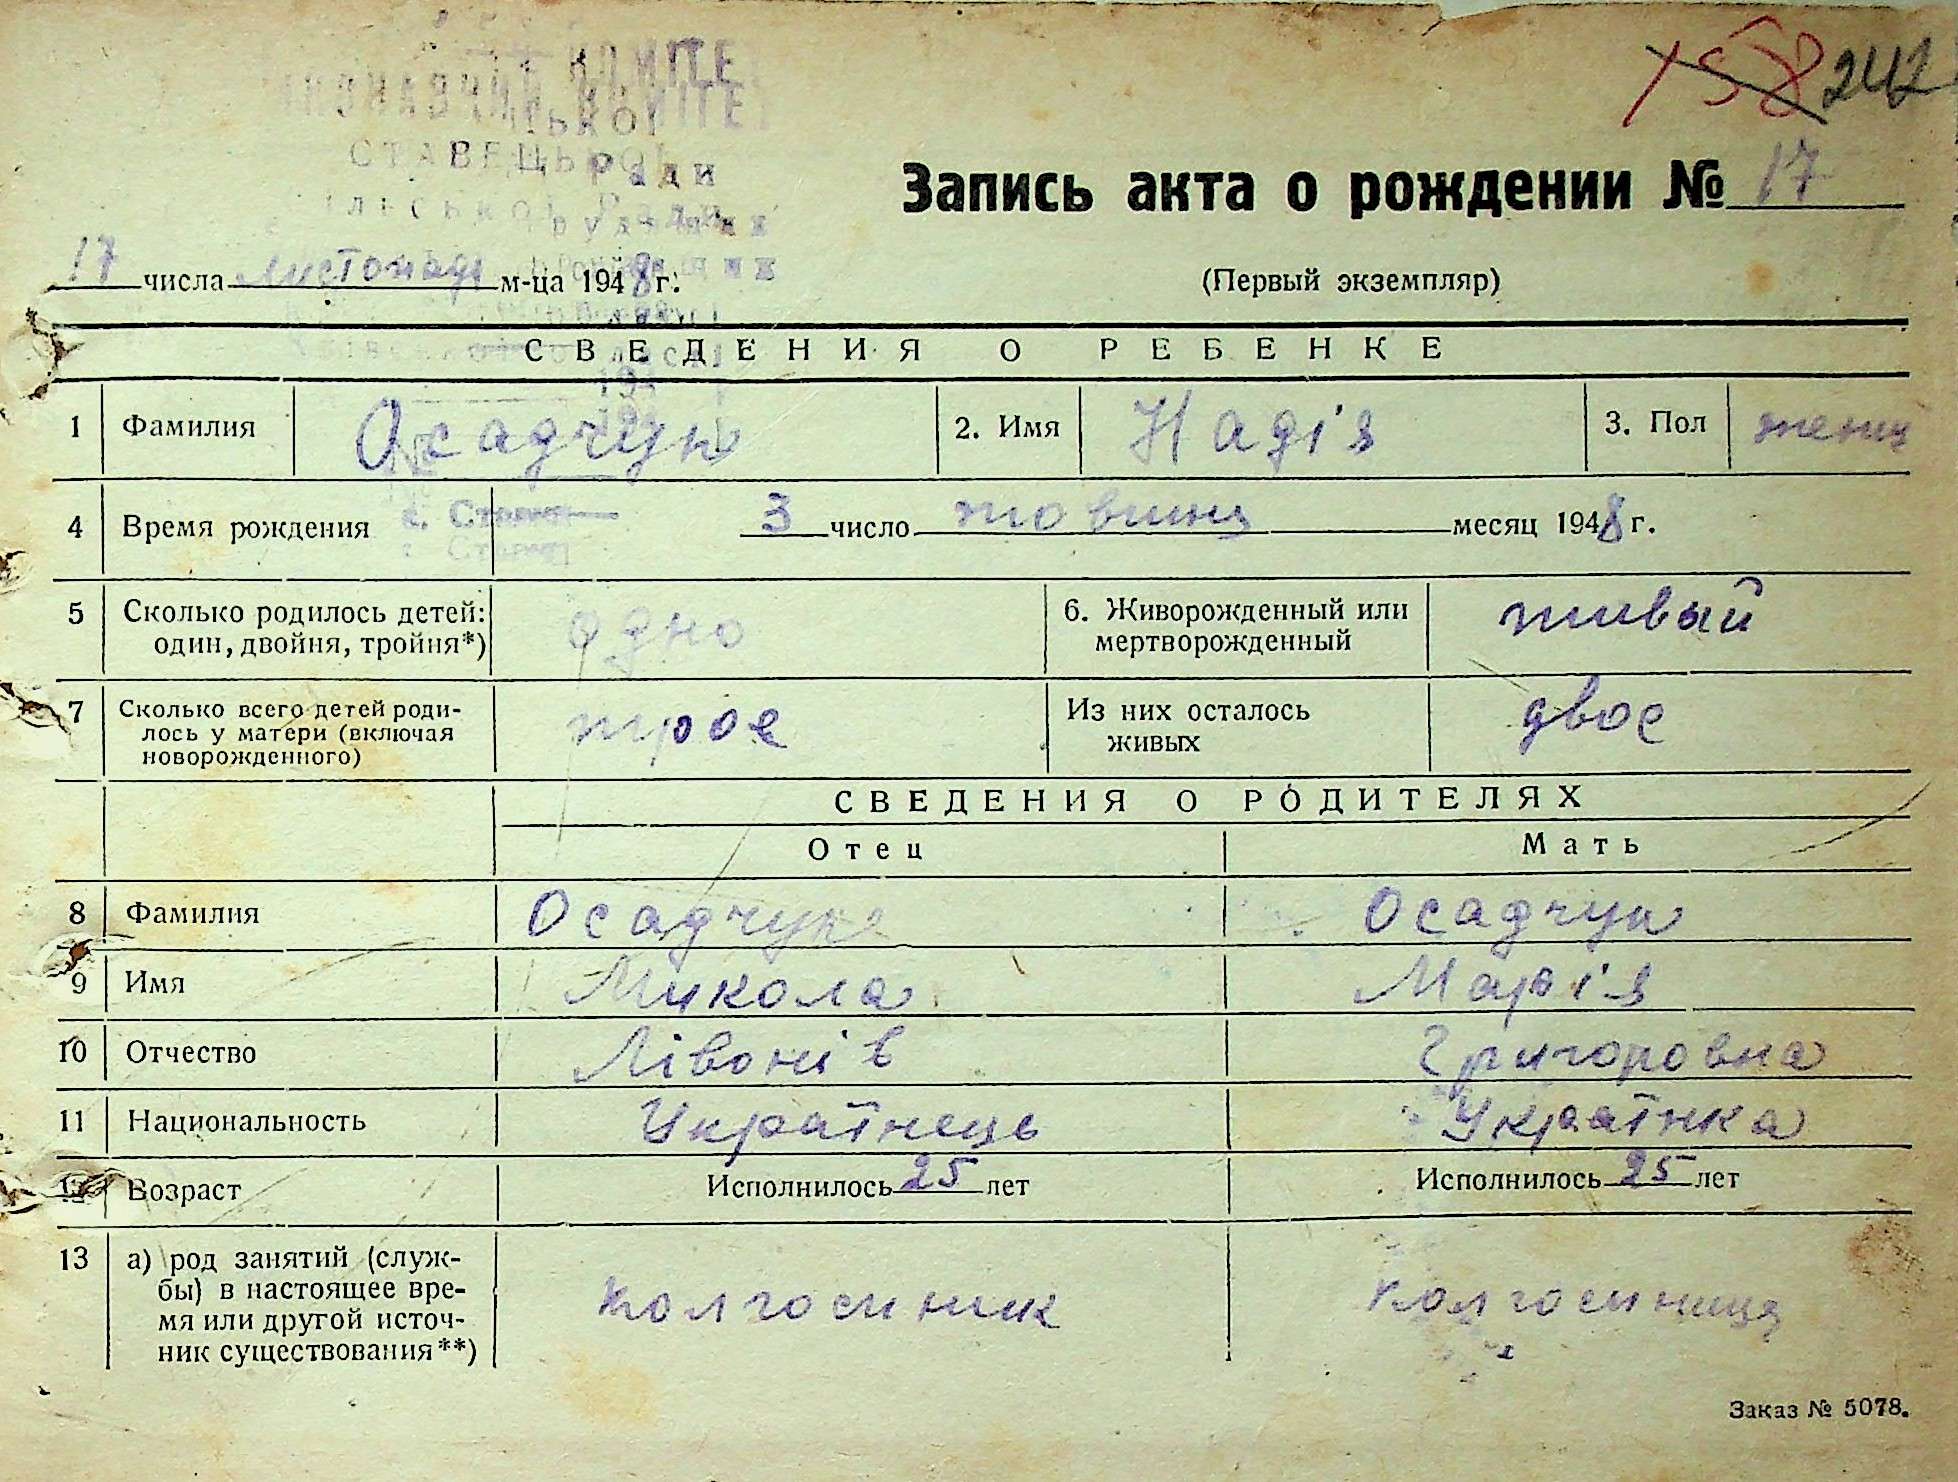 158 242
КОМІТЕ
ВИКОНАВЧИЙ КОМІТЕ
СТАВЕЦЬКОЇ
Ради
Запись акта о рождении № 17
17 числа листопада м-ца 1948 г.
(Первый экземпляр)
СВЕДЕНИЯ О РЕБЕНКЕ
1 Фамилия Осадчук 2. Имя Надія 3. Пол
4 Время рождения 3 число жовтня месяц 1948 г.
5 Сколько родилось детей: одно 6. Живорожденный или живый
один, двойня, тройня*) мертворожденный
7 Сколько всего детей роди- трое Из них осталось двое
лось у матери (включая живых
новорожденного)
СВЕДЕНИЯ О РОДИТЕЛЯХ
Отец Мать
8 Фамилия Осадчук Осадчук
9 Имя Микола Марія
10 Отчество Лівонів Григоровна
11 Национальность Українець Українка
12 Возраст Исполнилось 25 лет Исполнилось 25 лет
13 а) род занятий (служ-
бы) в настоящее вре- колгоспник колгоспниця
мя или другой источ-
ник существования**)
Заказ № 5078.